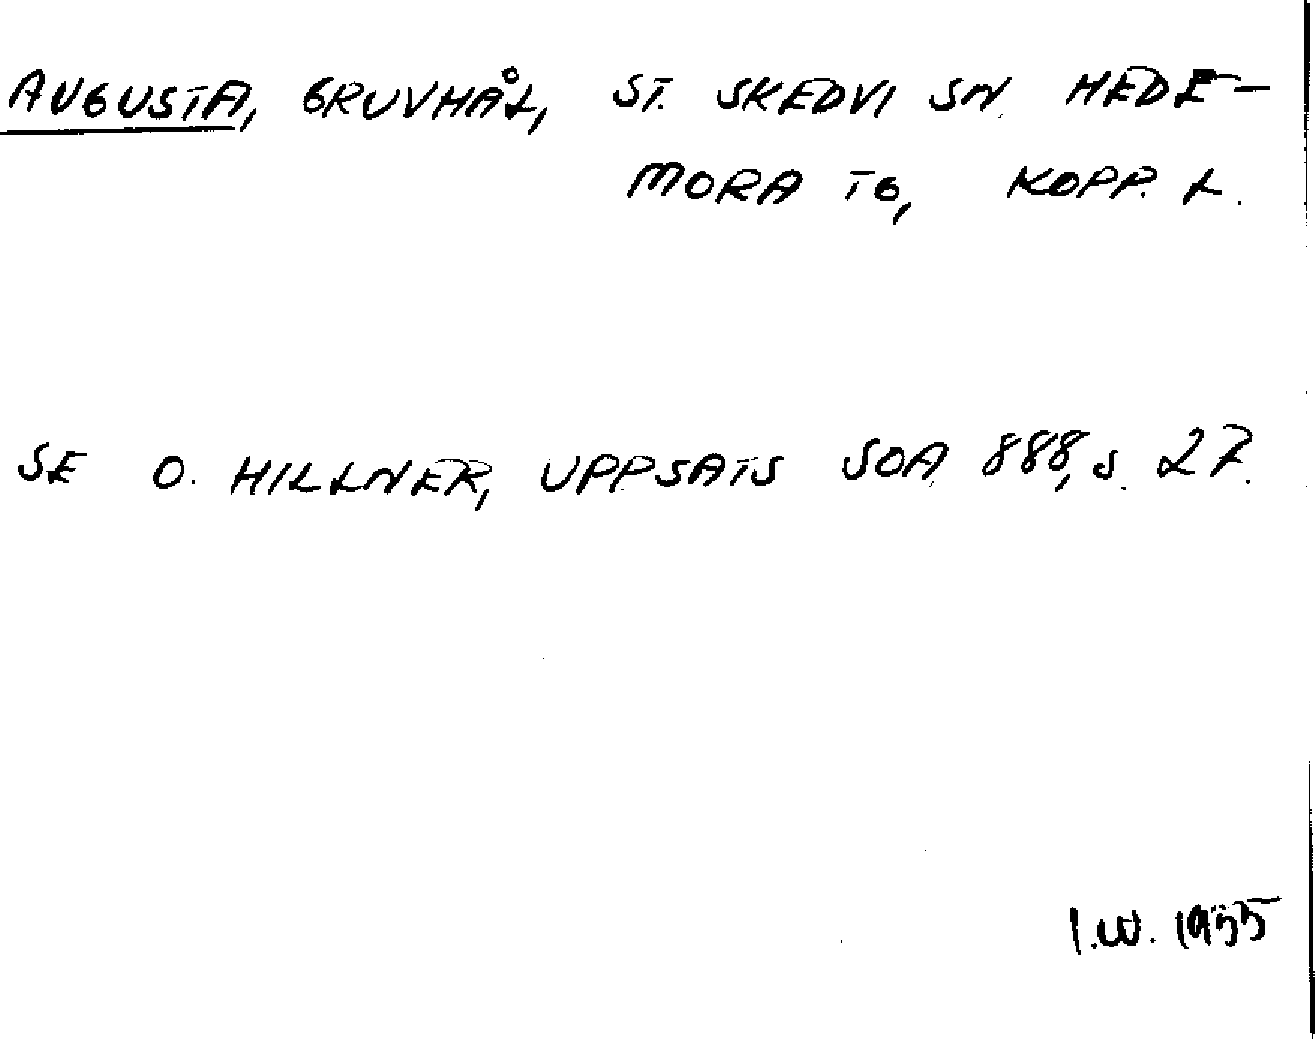 AUGUSTA, GRUVHÅL, ST. SKEDVI SN. HEDE-
MORA TG, KOPP. L.
SE O. HILLNER, UPPSATS SOA 888, s. 27.
I.W. 1955